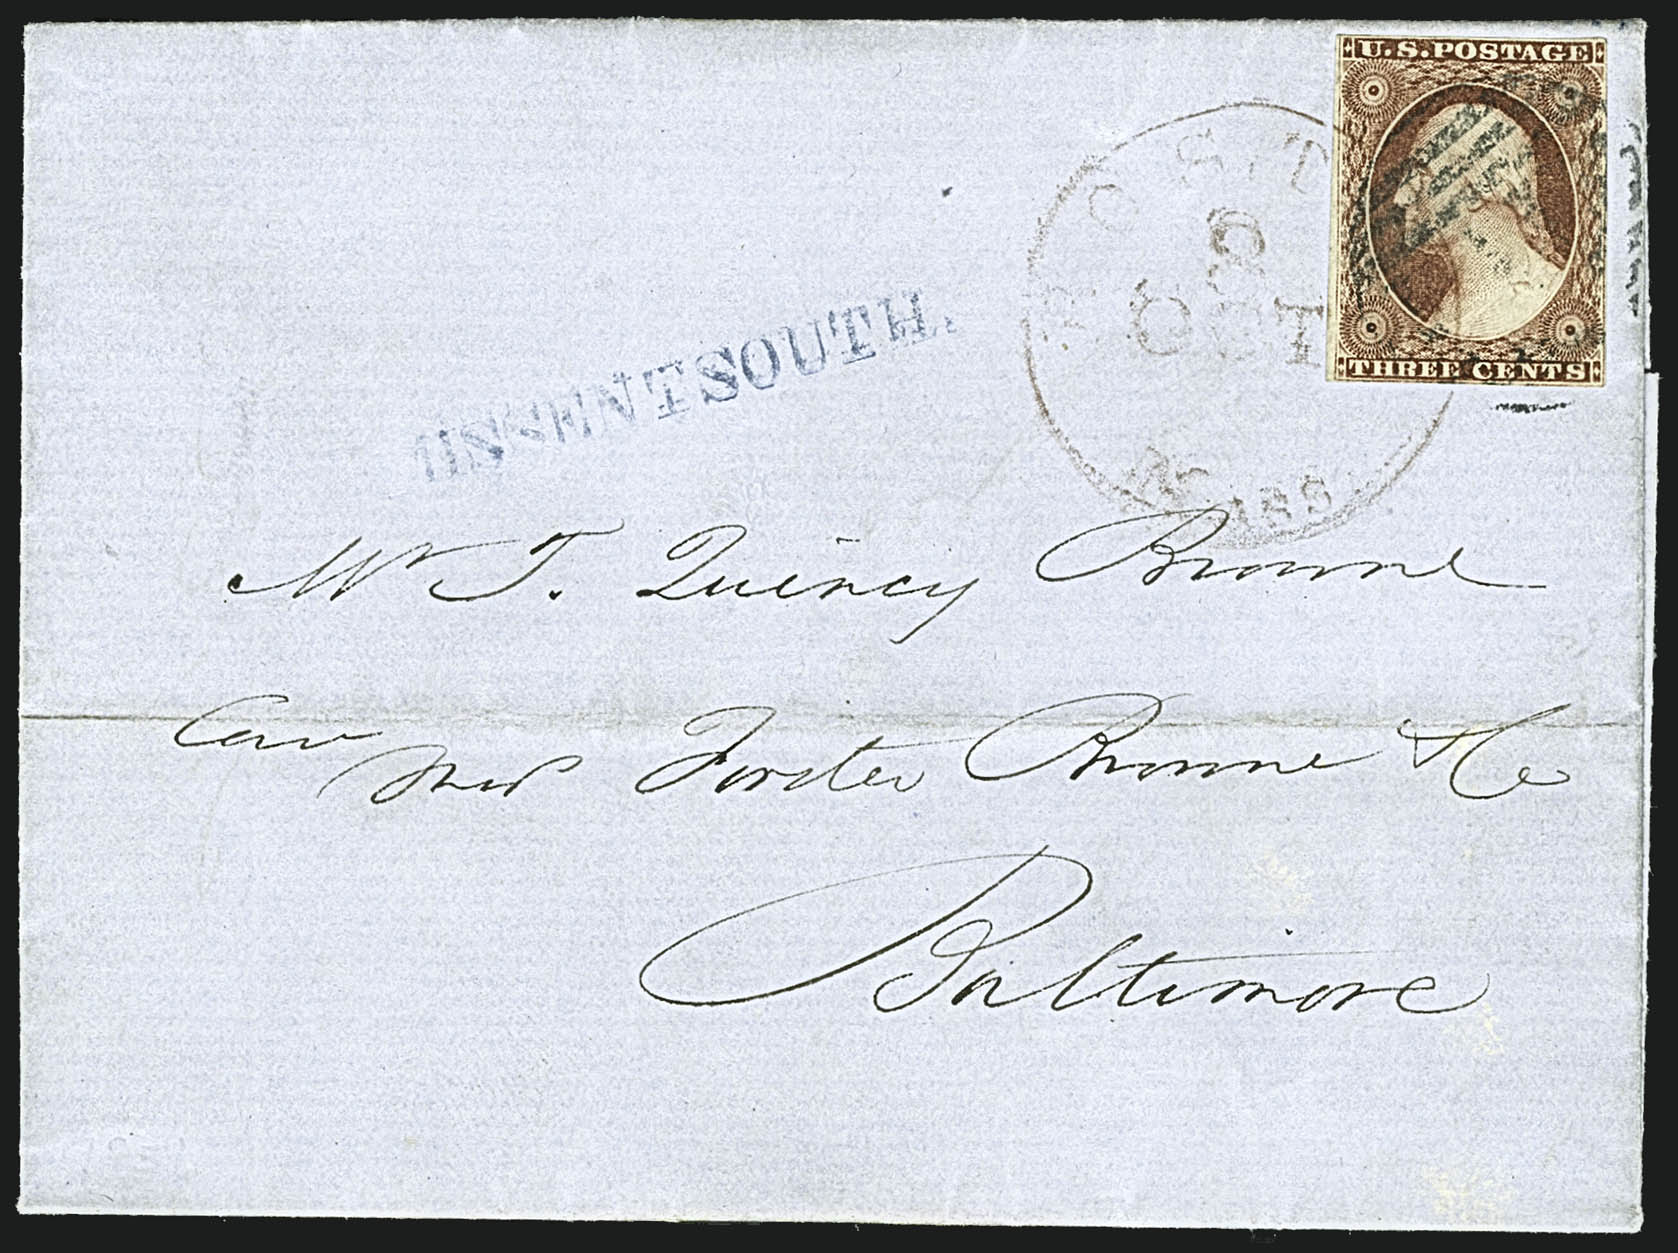 U.S. POSTAGE
THREE CENTS
BOSTON
8
OCT
MASS
MISSENT SOUTH.
Mr T. Quincy Browne
Care
Mess Forster Browne & Co
Baltimore